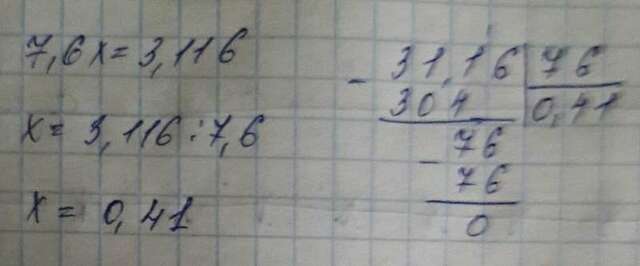 7,6x=3,116
x= 3,116:7,6
x= 0,41
- 31,16 | 76
304 | 0,41
- 76
76
0